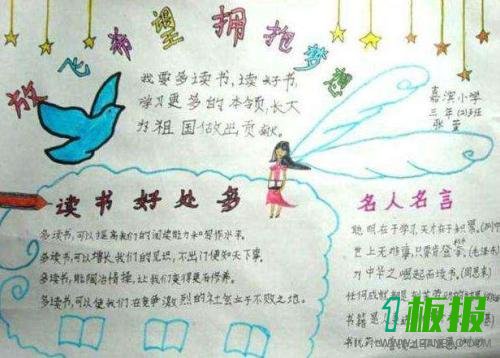 放飞希望 拥抱梦想
我要多读书，读好书，
学习更多的本领，长大
为祖国做出贡献。
嘉滨小学
三年(2)班
张萱
读书好处多
多读书，可以提高我们的阅读能力和写作水平。
多读书，可以增长我们的见识，不出门便知天下事。
多读书，能陶冶情操，让我们变得更有修养。
多读书，可以使我们在竞争激烈的社会立于不败之地。
名人名言
聪明在于学习，天才在于积累。
世上无难事，只要肯登攀。(毛泽东)
为中华之崛起而读书。(周恩来)
任何成就都是刻苦
书籍是
书犹药也
1板报